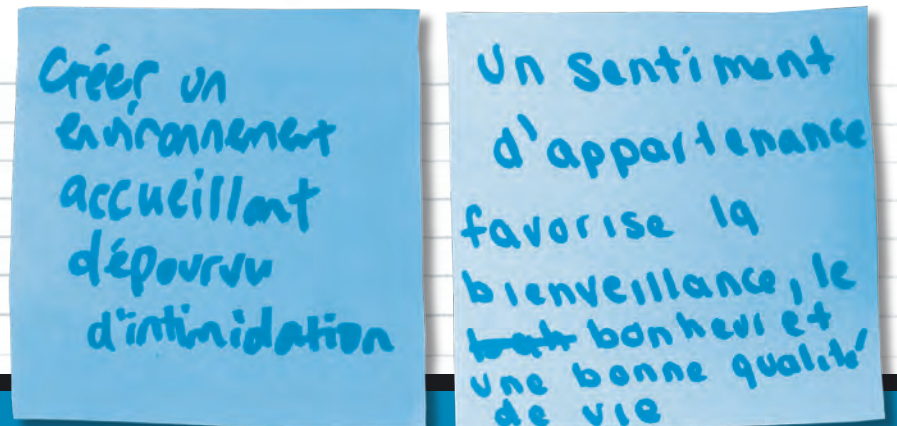 Créer un
environnement
accueillant
dépourvu
d'intimidation
Un sentiment
d'appartenance
favorise la
bienveillance, le
bonheur et
une bonne qualité
de vie